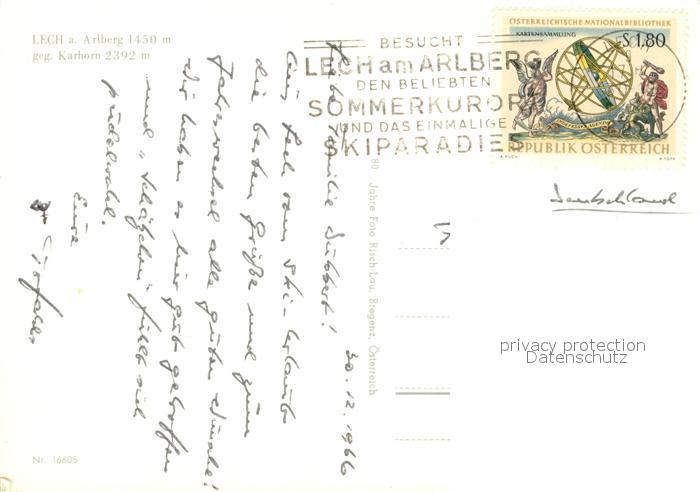 LECH a. Arlberg 1450 m
geg. Karhorn 2392 m
BESUCHT
LECH am ARLBERG
DEN BELIEBTEN
SOMMERKURORT
UND DAS EINMALIGE
SKIPARADIES
ÖSTERREICHISCHE NATIONALBIBLIOTHEK
KARTENSAMMLUNG
S 1,80
REPUBLIK ÖSTERREICH
30.12.1966
Liebe Familie
Aus Lech vom Ski-Urlaub
die besten Grüße und zum
Jahreswechsel alle guten Wünsche!
Wir haben es hier gut getroffen
und "Schäfchen" fühlt sich
pudelwohl.
Eure
80 Jahre Foto Risch-Lau, Bregenz, Österreich
Deutschland
privacy protection
Datenschutz
Nr. 16605